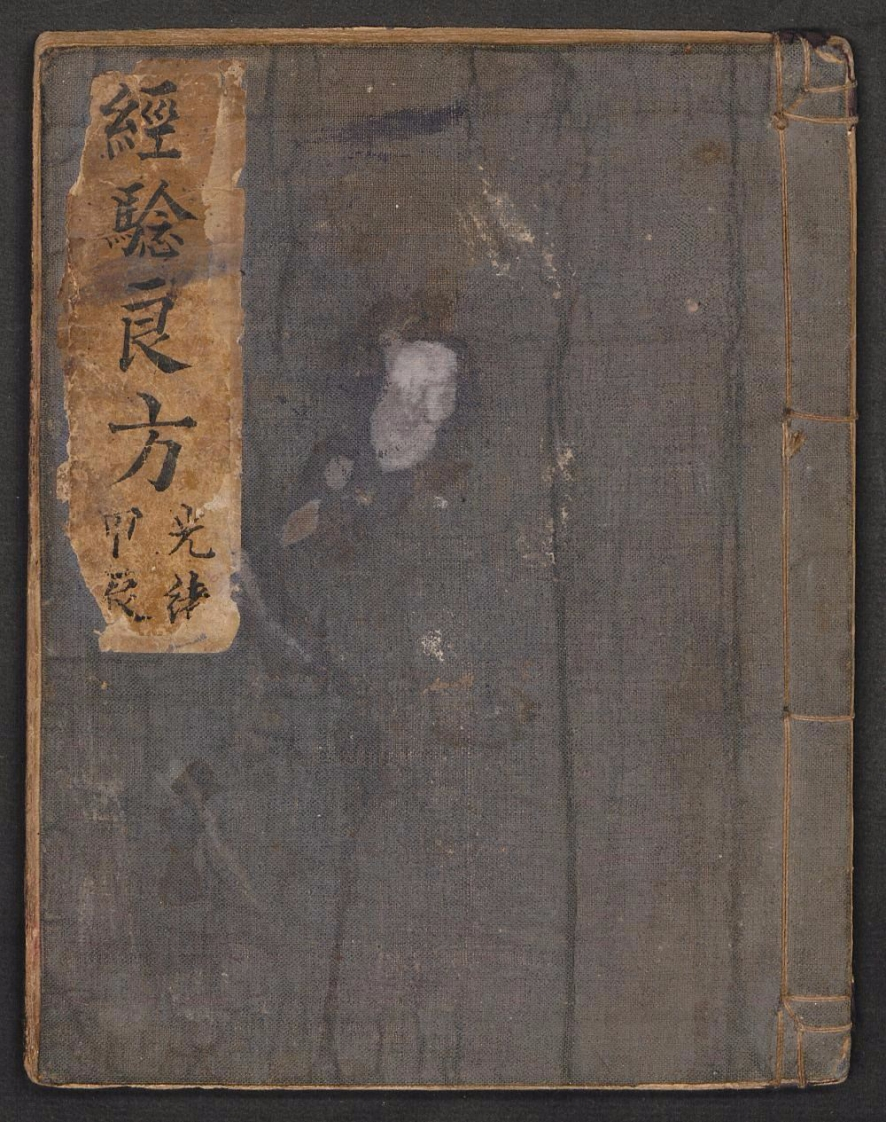 經騐良方
光緒
甲辰